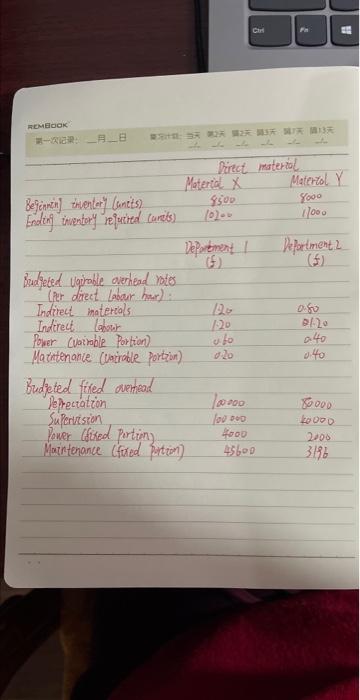 Ctrl
Fn
REMBOOK
第一次记录: __月__日 复习计划: 当天 第2天 第2天 第3天 第7天 第13天
Direct material
Material X Material Y
Beginning inventory (units) 8500 8000
Ending inventory required (units) 10200 11000
Department 1 Department 2
(£) (£)
Budgeted vairable overhead rates
(Per direct labour hour):
Indirect materials 1.20 0.80
Indirect labour 1.20 1.20
Power (vairable Portion) 0.60 0.40
Maintenance (vairable portion) 0.20 0.40
Budgeted fixed overhead
Depreciation 100000 80000
Supervision 100000 40000
Power (fixed Portion) 4000 2000
Maintenance (fixed portion) 45600 3196